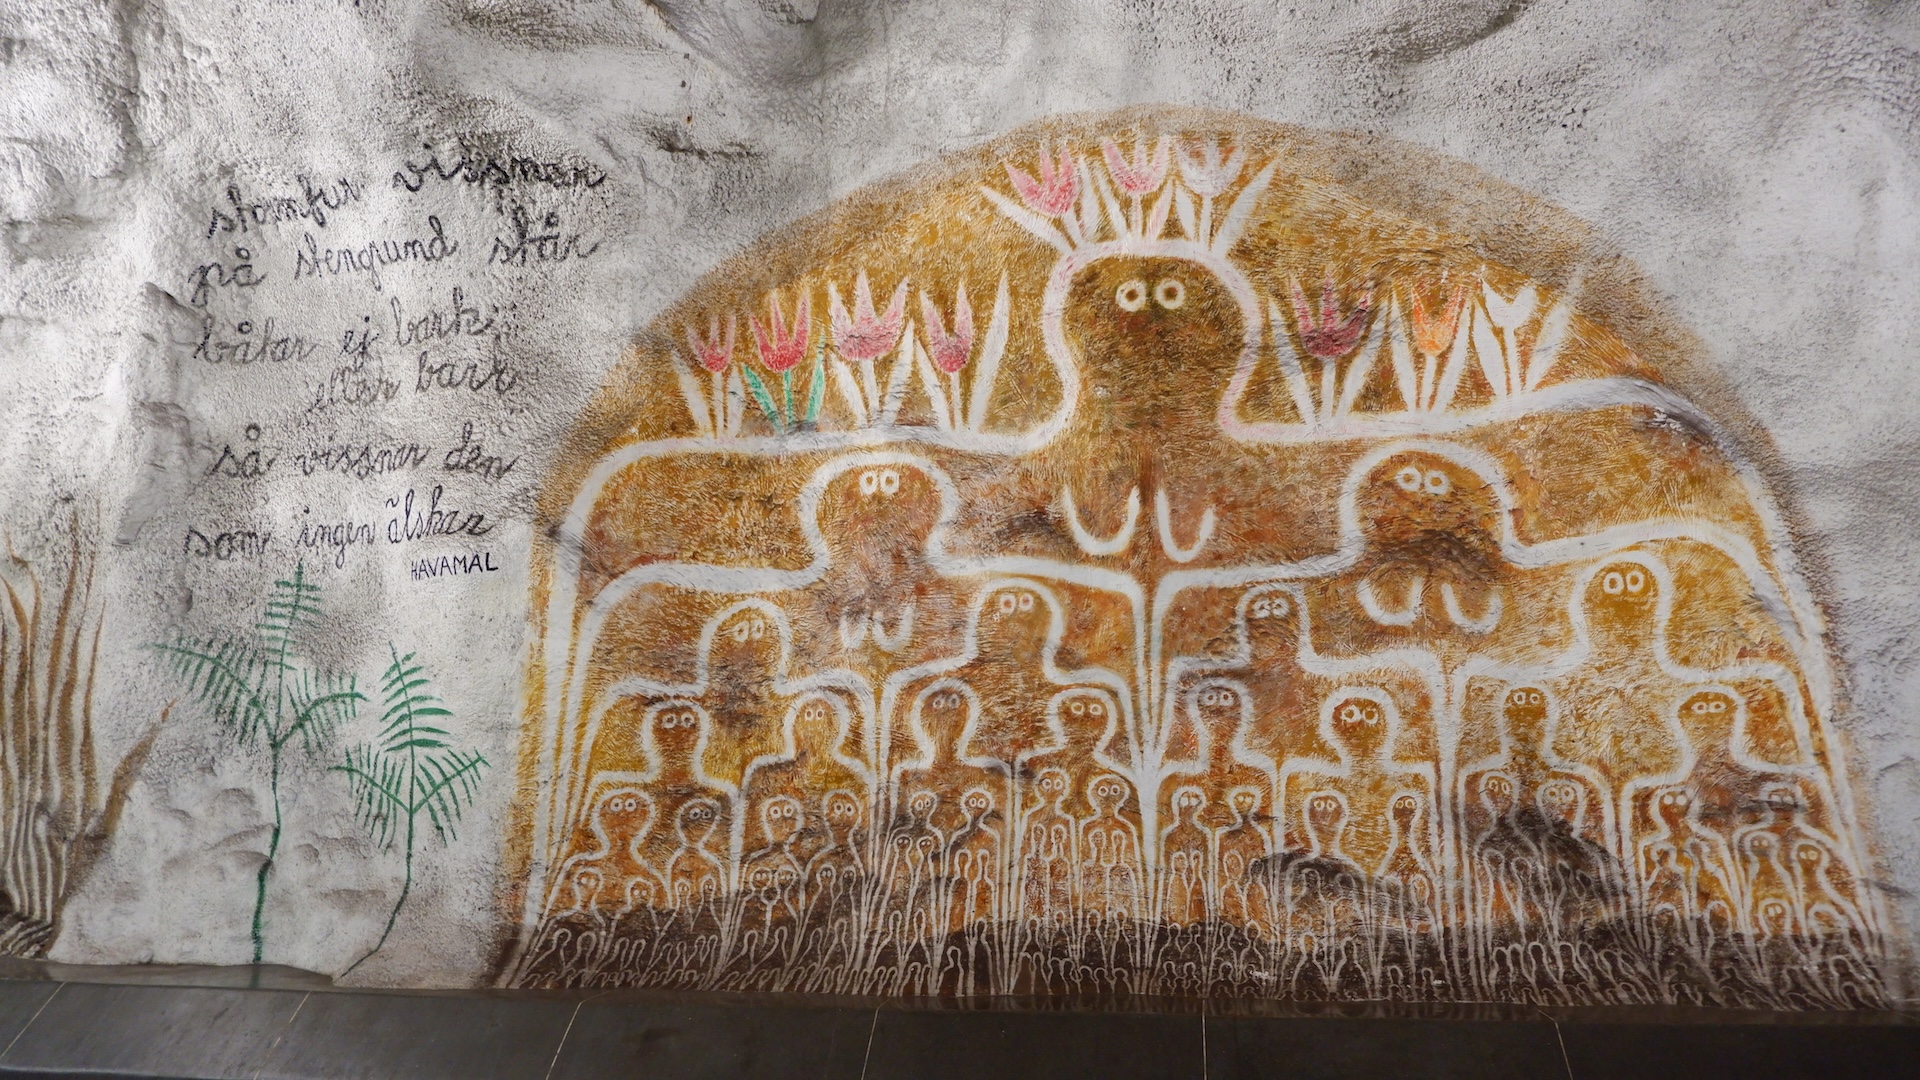 stamfur vissnar
på stengrund står
båtar ej bark
eller barr
så vissnar den
som ingen älskar
HAVAMAL